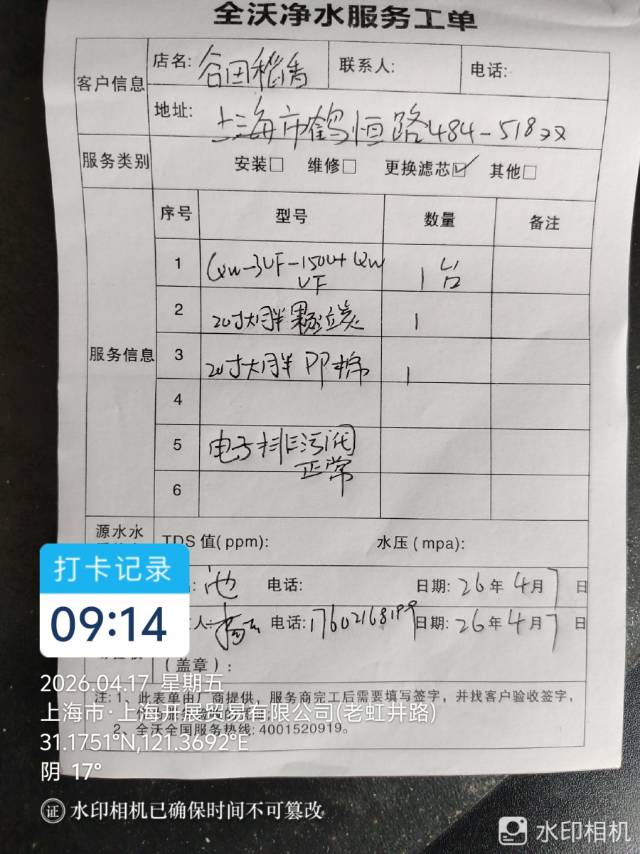 全沃净水服务工单
客户信息 店名: 谷田稻香 联系人: 电话:
地址: 上海市鹤恒路484-518
服务类别 安装□ 维修□ 更换滤芯☑ 其他□
服务信息
序号 型号 数量 备注
1 QW-3UF-150U+QW UF 1台
2 20寸大胖颗粒炭 1
3 20寸大胖PP棉 1
4
5 电子排污阀 正常
6
源水水
TDS 值(ppm): 水压(mpa):
池 电话: 日期: 26年4月7日
电话: 17602168199 日期: 26年4月7日
(盖章):
注: 1、此表单由厂商提供，服务商完工后需要填写签字，并找客户验收签字，
2、全沃全国服务热线: 4001520919。
打卡记录
09:14
2026.04.17 星期五
上海市·上海开展贸易有限公司(老虹井路)
31.1751°N,121.3692°E
阴 17°
证 水印相机已确保时间不可篡改
水印相机